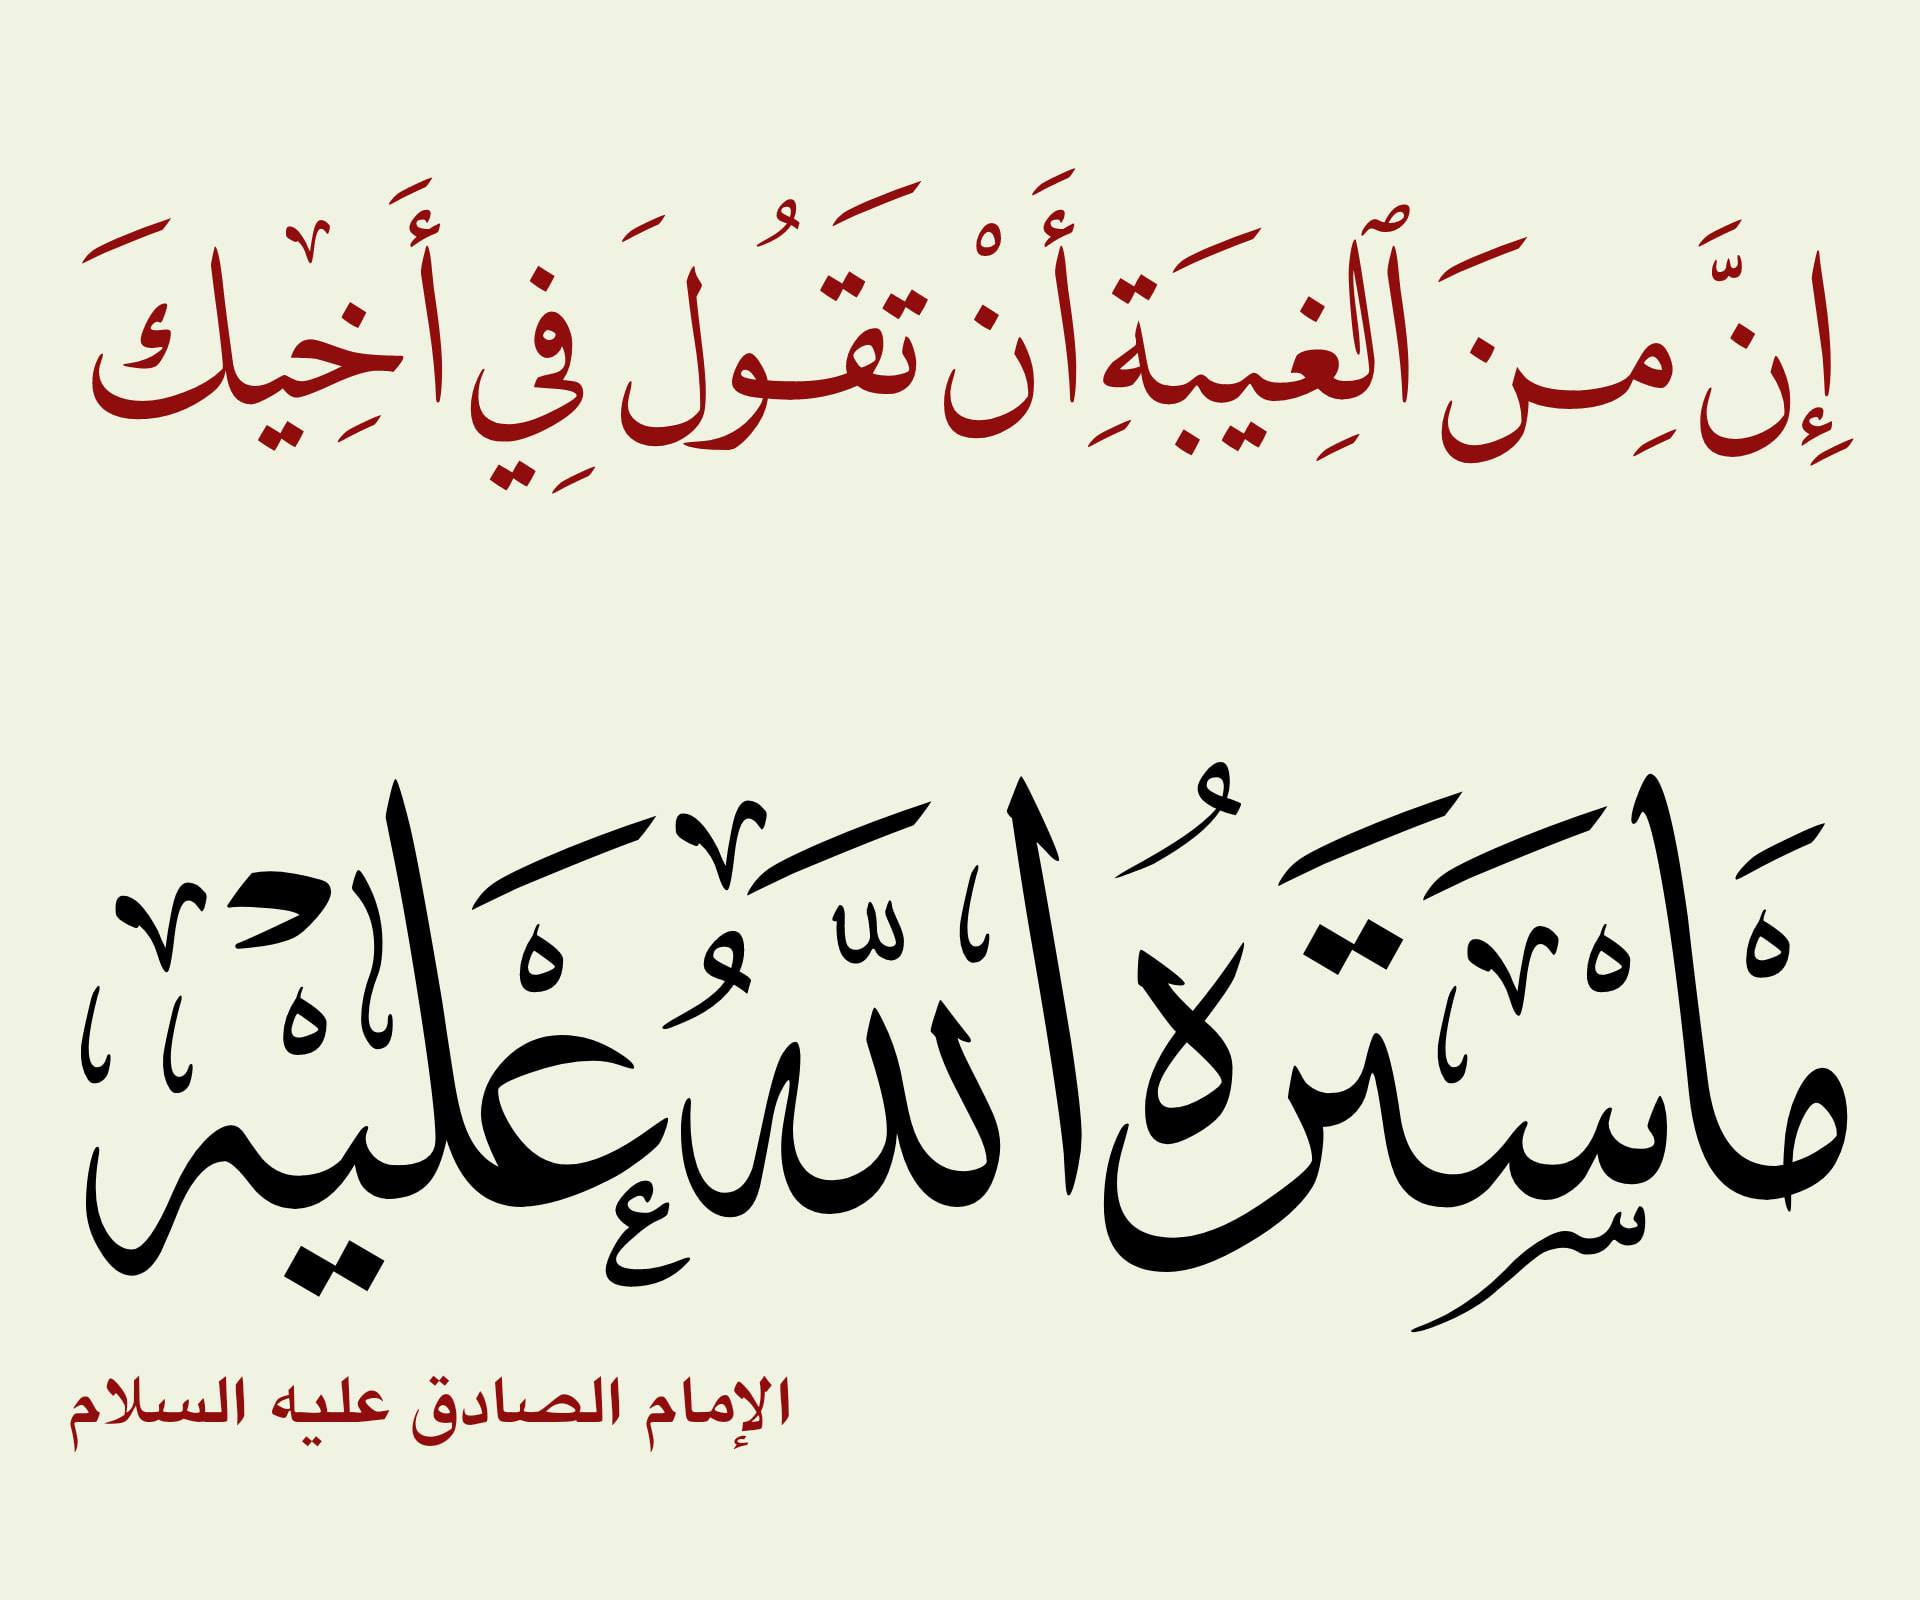 إِنَّ مِنَ ٱلْغِيبَةِ أَنْ تَقُولَ فِي أَخِيكَ
مَا سَتَرَهُ اللَّهُ عَلَيْهِ
الإمام الصادق عليه السلام